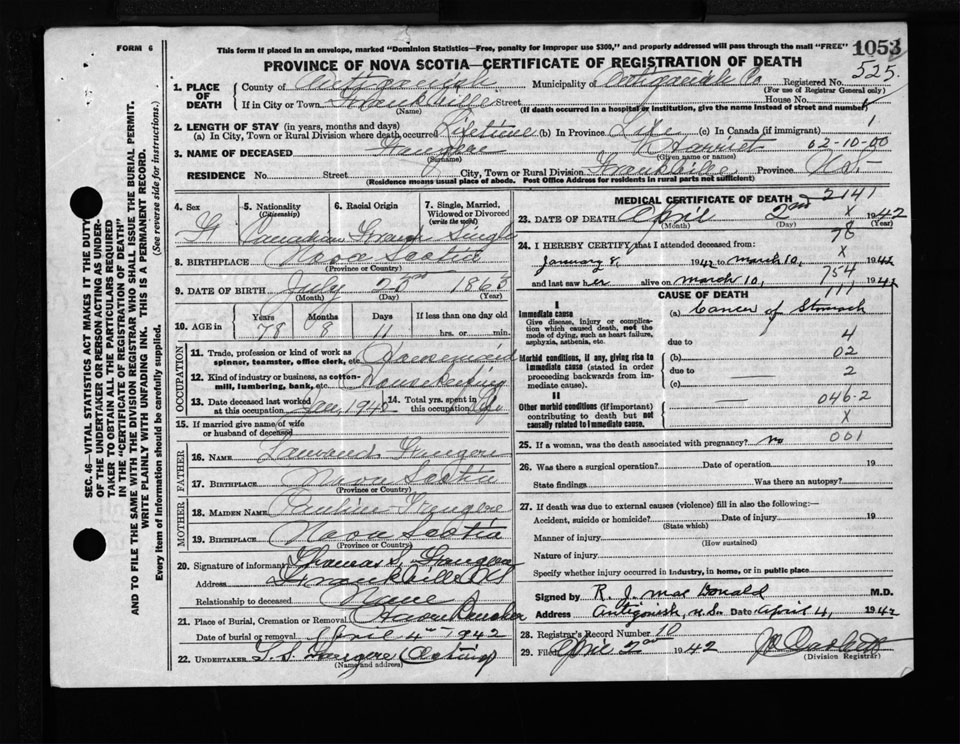 FORM 6
This form if placed in an envelope, marked "Dominion Statistics—Free, penalty for improper use $300," and properly addressed will pass through the mail "FREE"
1053
PROVINCE OF NOVA SCOTIA—CERTIFICATE OF REGISTRATION OF DEATH
525.
1. PLACE OF DEATH
County of Antigonish Municipality of Antigonish Co Registered No.
(For use of Registrar General only)
If in City or Town Frankville Street House No.
(Name) (If death occurred in a hospital or institution, give the name instead of street and number)
2. LENGTH OF STAY (in years, months and days)
(a) In City, Town or Rural Division where death occurred Lifetime (b) In Province Life (c) In Canada (if immigrant)
1
3. NAME OF DECEASED Fougere Harriet 02-10-00
(Surname) (Given name or names)
RESIDENCE No. Street City, Town or Rural Division Frankville Province N.S.
(Residence means usual place of abode. Post Office Address for residents in rural parts not sufficient)
4. Sex 5. Nationality (Citizenship) 6. Racial Origin 7. Single, Married, Widowed or Divorced (write the word)
F Canadian French Single
8. BIRTHPLACE Nova Scotia
(Province or Country)
9. DATE OF BIRTH July 1863
(Month) (Day) (Year)
10. AGE in Years Months Days If less than one day old
78 8 11 hrs. or min.
OCCUPATION
11. Trade, profession or kind of work as spinner, teamster, office clerk, etc Housemaid
12. Kind of industry or business, as cotton-mill, lumbering, bank, etc. Housekeeping
13. Date deceased last worked at this occupation 1942 14. Total yrs. spent in this occupation Life
15. If married give name of wife or husband of deceased
FATHER
16. NAME Fougere
17. BIRTHPLACE Nova Scotia
(Province or Country)
MOTHER
18. MAIDEN NAME Fougere
19. BIRTHPLACE Nova Scotia
(Province or Country)
20. Signature of informant Thomas Fougere
Address Frankville N.S.
Relationship to deceased
21. Place of Burial, Cremation or Removal Havre Boucher
Date of burial or removal April 4 1942
22. UNDERTAKER Fougere (Acting)
(Name and address)
MEDICAL CERTIFICATE OF DEATH 2141
23. DATE OF DEATH April 2nd 1942
(Month) (Day) (Year)
X
78
24. I HEREBY CERTIFY that I attended deceased from:
X
January 8, 1942 to March 10,
754
and last saw her alive on March 10, 1942
111
CAUSE OF DEATH
I
Immediate cause
Give disease, injury or complication which caused death, not the mode of dying, such as heart failure, asphyxia, asthenia, etc.
(a) Cancer of Stomach
due to 4
Morbid conditions, if any, giving rise to immediate cause (stated in order proceeding backwards from immediate cause).
(b) 02
due to 2
(c)
II
Other morbid conditions (if important) contributing to death but not causally related to immediate cause.
046-2
X
25. If a woman, was the death associated with pregnancy? no 001
26. Was there a surgical operation? Date of operation 19
State findings Was there an autopsy?
27. If death was due to external causes (violence) fill in also the following:—
Accident, suicide or homicide? Date of injury 19
(State which)
Manner of injury
(How sustained)
Nature of injury
Specify whether injury occurred in industry, in home, or in public place
Signed by R. J. MacDonald M.D.
Address Antigonish, N.S. Date April 4, 1942
28. Registrar's Record Number 10
29. Filed April 2nd 1942
(Division Registrar)
SEC. 46—VITAL STATISTICS ACT MAKES IT THE DUTY
OF THE UNDERTAKER OR PERSON ACTING AS UNDER-
TAKER TO OBTAIN ALL THE PARTICULARS REQUIRED
IN THE "CERTIFICATE OF REGISTRATION OF DEATH"
AND TO FILE THE SAME WITH THE DIVISION REGISTRAR WHO SHALL ISSUE THE BURIAL PERMIT.
WRITE PLAINLY WITH UNFADING INK. THIS IS A PERMANENT RECORD.
Every item of information should be carefully supplied. (See reverse side for instructions.)